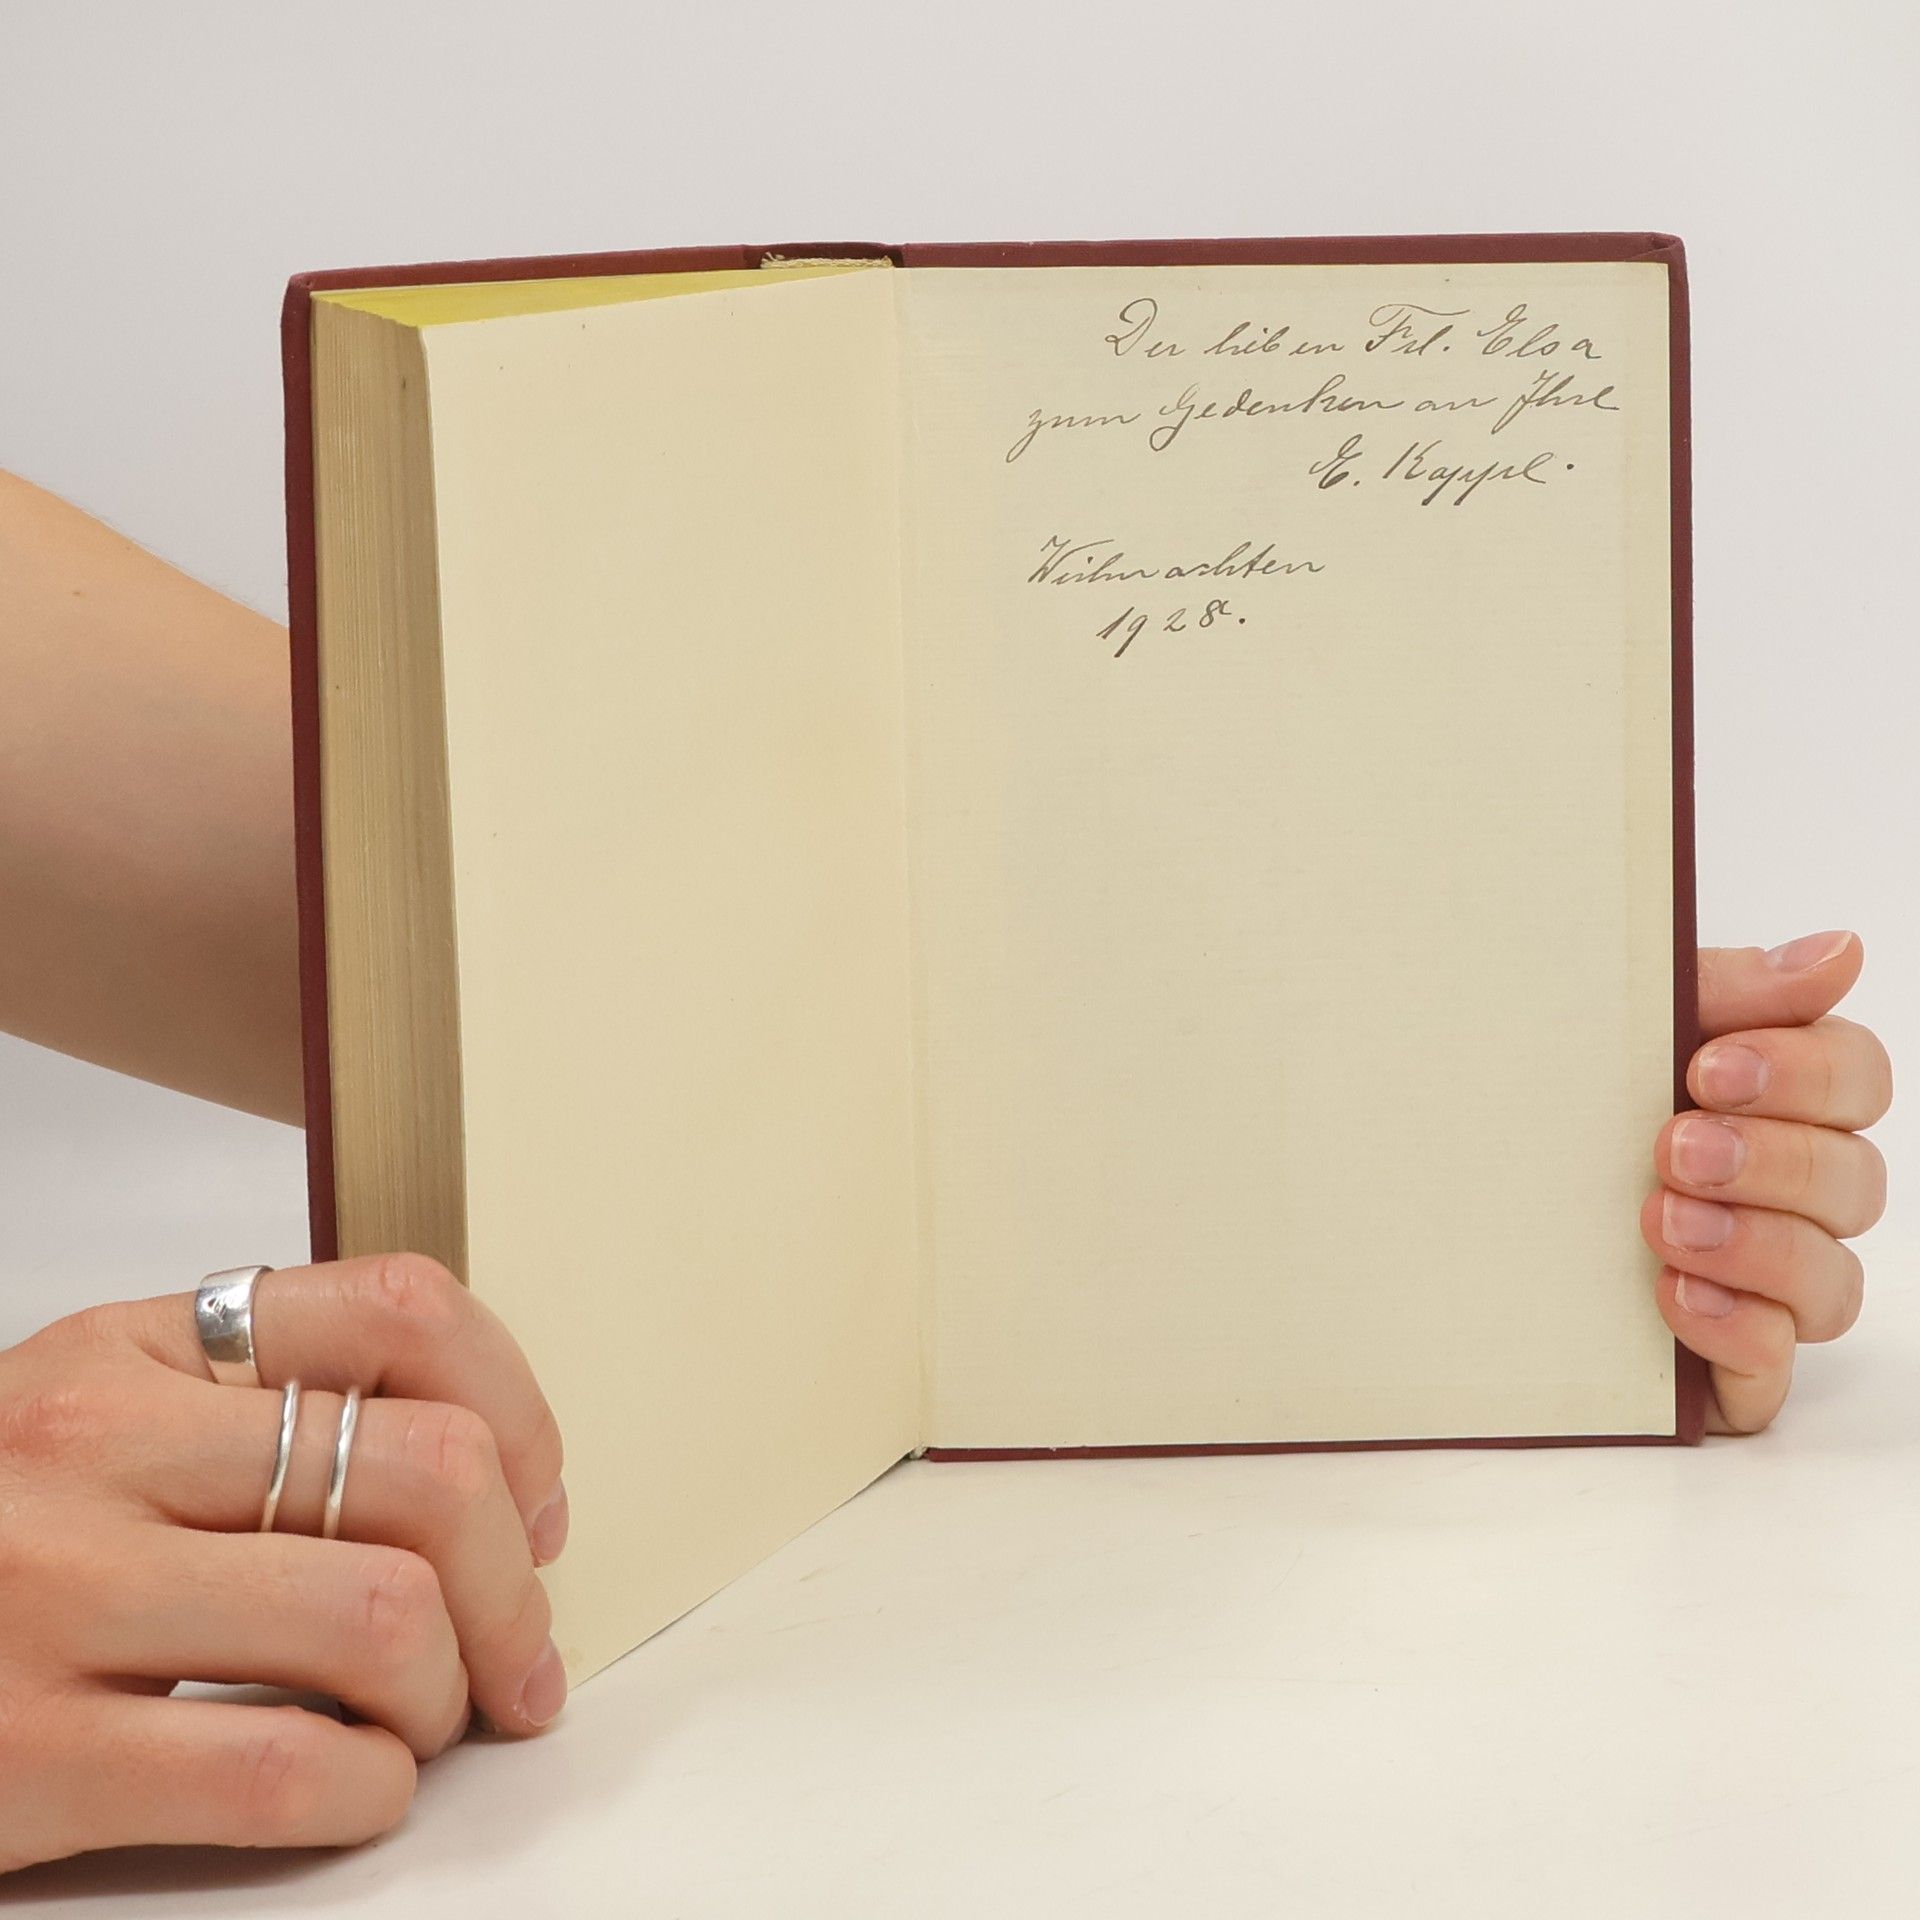 Der lieben Frl. Elsa
zum Gedenken an Ihre
E. Kappl.
Weihnachten
1928.